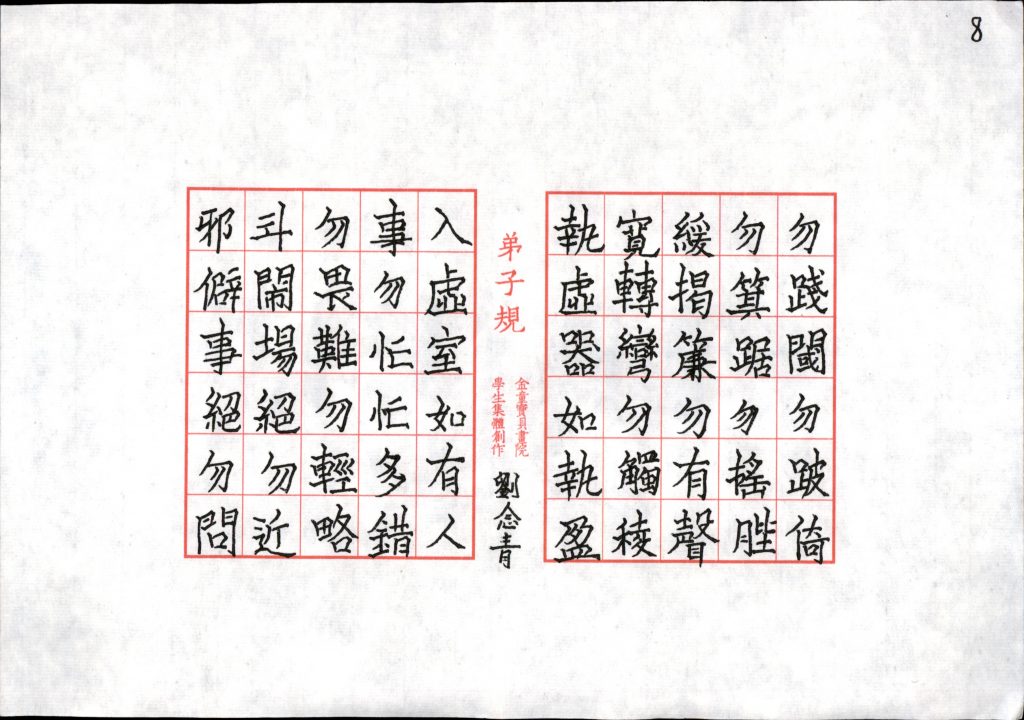 8
勿踐閾勿跛倚
勿箕踞勿搖髀
緩揭簾勿有聲
寬轉彎勿觸稜
執虛器如執盈
弟子規
金童寶貝書院
學生集體創作
劉念青
入虛室如有人
事勿忙忙多錯
勿畏難勿輕略
斗鬧場絕勿近
邪僻事絕勿問